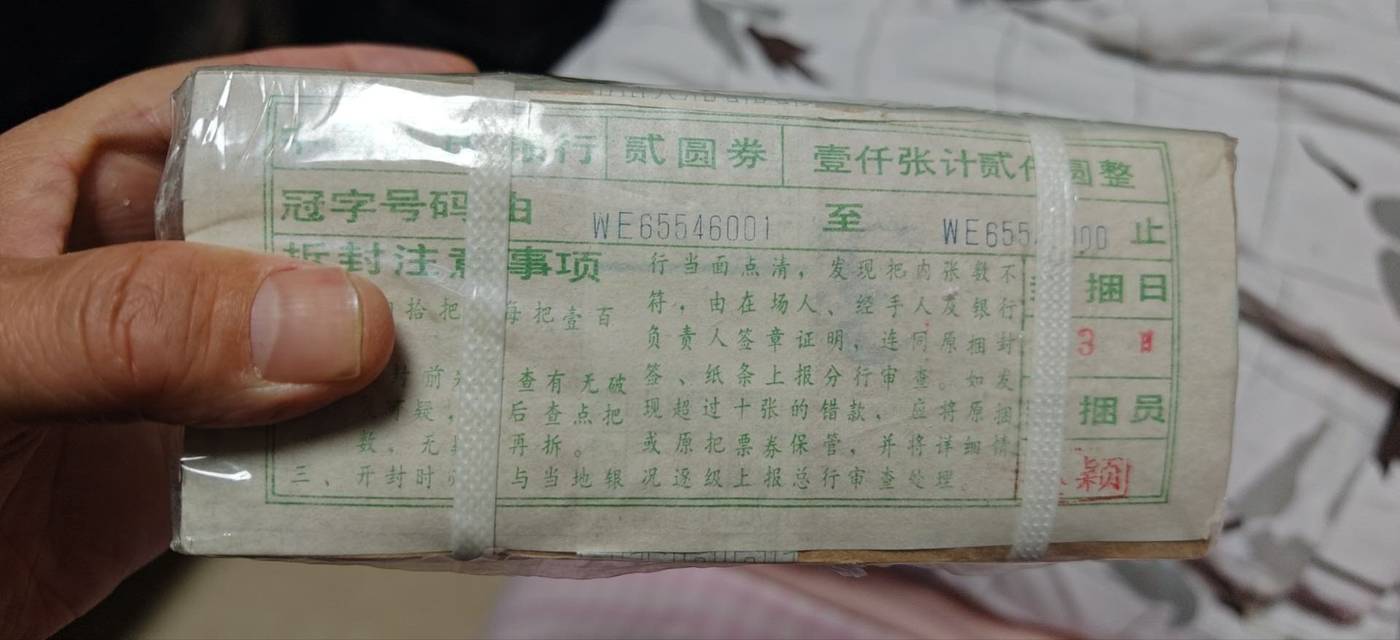 银行 贰圆券 壹仟张计贰仟圆整
冠字号码由 WE65546001 至 WE655 000 止
拆封注意事项
拾把 每把壹百
前 查有无破
疑， 后查点把
数，无 再拆。
三、开封时 与当地银
行当面点清，发现把内张数不
符，由在场人、经手人及银行
负责人签章证明，连同原捆封
签、纸条上报分行审查。如发
现超过十张的错款，应将原捆
或原把票券保管，并将详细情
况逐级上报总行审查处理。
捆日
3
捆员
颖